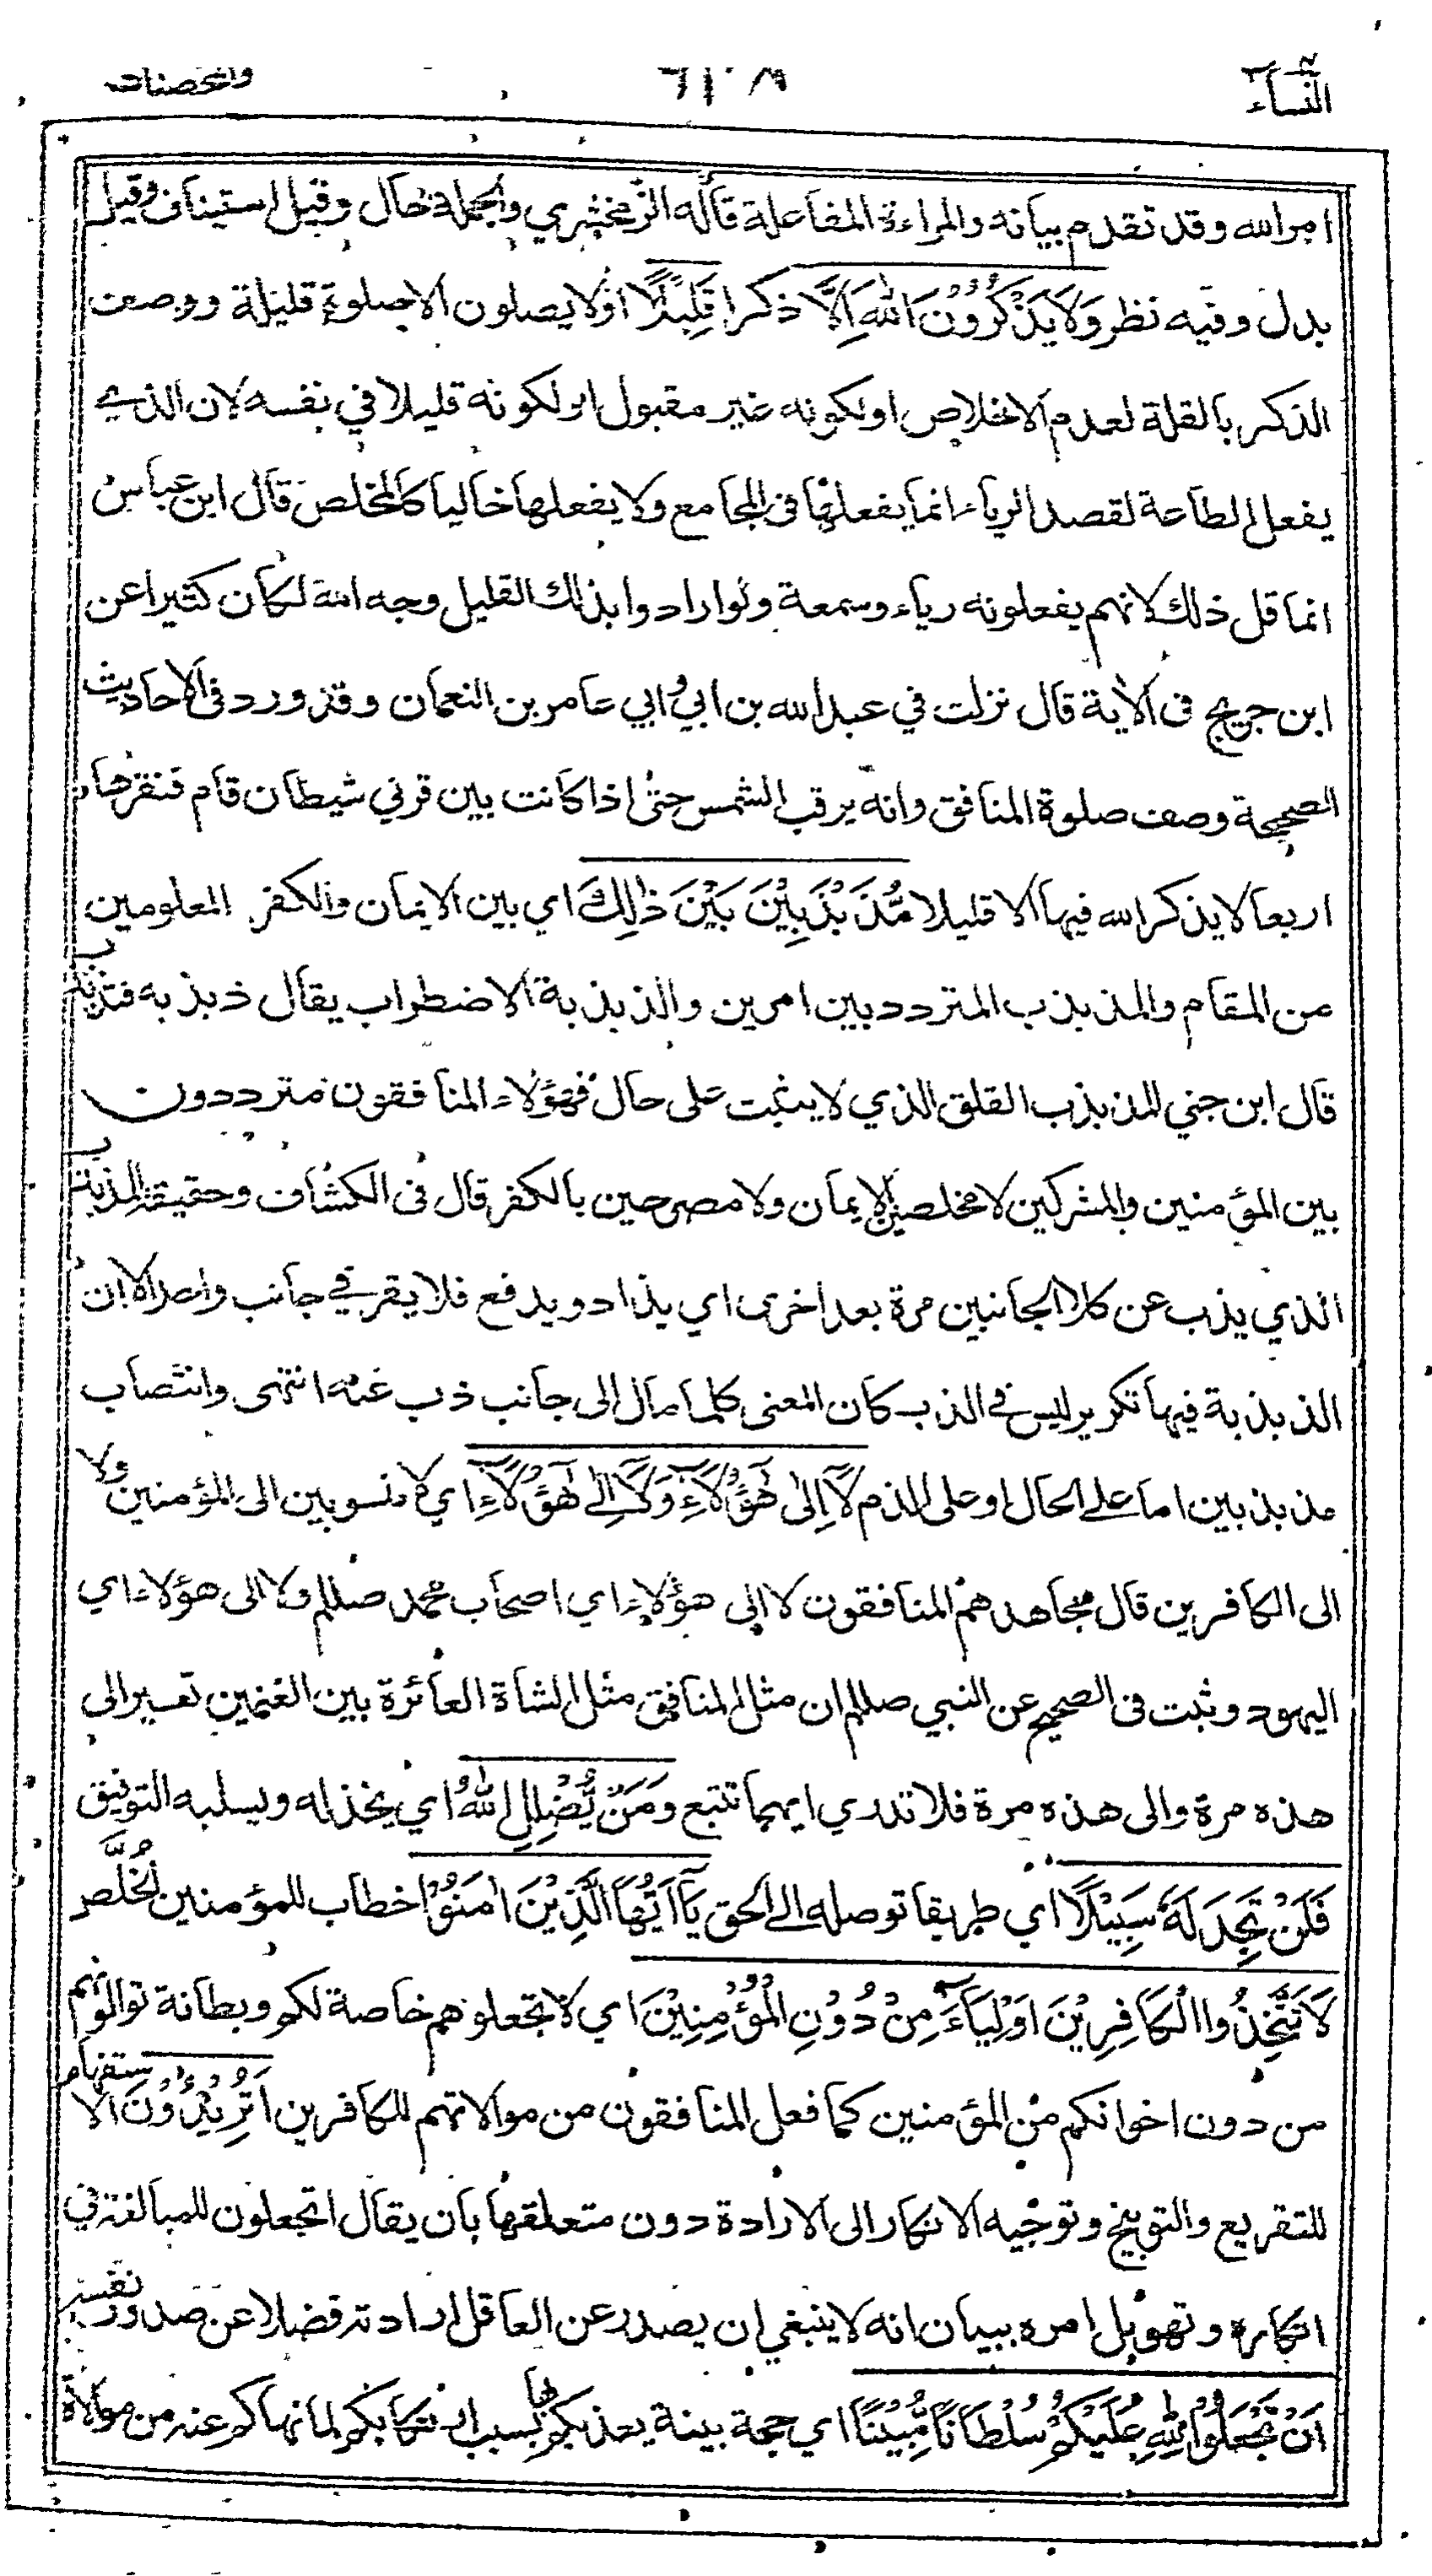 النساء
والمحصنات
امر الله وقد تقدم بيانه والمراءة المفاعلة قاله الزمخشري والجملة حال وقيل استيناف وقيل
بدل وفيه نظر وَلَا يَذْكُرُوْنَ اللّٰهَ اِلَّا ذكرا قَلِيْلًا اولا يصلون الا صلوة قليلة ووصف
الذكر بالقلة لعدم الاخلاص او لكونه غير مقبول او لكونه قليلا في نفسه لان الذي
يفعل الطاعة لقصد الرياء انما يفعلها في المجامع ولا يفعلها خاليا كالمخلص قال ابن عباس
انما قل ذلك لانهم يفعلونه رياء وسمعة ولو ارادوا بذلك القليل وجه الله لكان كثيرا عن
ابن جريج في الاية قال نزلت في عبد الله بن ابي وابي عامر بن النعمان وقد ورد في الاحاديث
الصحيحة وصف صلوة المنافق وانه يرقب الشمس حتى اذا كانت بين قرني شيطان قام فنقرها
اربعا لا يذكر الله فيها الا قليلا مُّذَبْذَبِيْنَ بَيْنَ ذٰلِكَ اي بين الايمان والكفر المعلومين
من المقام والمذبذب المتردد بين امرين والذبذبة الاضطراب يقال ذبذبه فتذبذب
قال ابن جني المذبذب القلق الذي لا يثبت على حال فهؤلاء المنافقون مترددون
بين المؤمنين والمشركين لا مخلصين الايمان ولا مصرحين بالكفر قال في الكشاف وحقيقة المذبذب
الذي يذب عن كلا الجانبين مرة بعد اخرى اي يذاد ويدفع فلا يقر في جانب واحد الا ان
الذبذبة فيها تكرير ليس في الذب كان المعنى كلما مال الى جانب ذب عنه انتهى وانتصاب
مذبذبين اما على الحال او على الذم لَآ اِلٰى هٰٓؤُلَآءِ وَلَآ اِلٰى هٰٓؤُلَآءِ اي لا منسوبين الى المؤمنين ولا
الى الكافرين قال مجاهد هم المنافقون لا الى هؤلاء اي اصحاب محمد صللم ولا الى هؤلاء اي
اليهود وثبت في الصحيح عن النبي صللم ان مثل المنافق مثل الشاة العائرة بين الغنمين تعير الى
هذه مرة والى هذه مرة فلا تدري ايهما تتبع وَمَنْ يُّضْلِلِ اللّٰهُ اي يخذله ويسلبه التوفيق
فَلَنْ تَجِدَ لَهٗ سَبِيْلًا اي طريقا توصله الى الحق يٰٓاَيُّهَا الَّذِيْنَ اٰمَنُوْا خطاب للمؤمنين الخُلَّص
لَا تَتَّخِذُوا الْكَافِرِيْنَ اَوْلِيَآءَ مِنْ دُوْنِ الْمُؤْمِنِيْنَ اي لا تجعلوهم خاصة لكم وبطانة توالونهم
من دون اخوانكم من المؤمنين كما فعل المنافقون من موالاتهم للكافرين اَتُرِيْدُوْنَ الاستفهام
للتقريع والتوبيخ وتوجيه الانكار الى الارادة دون متعلقها بان يقال اتجعلون للمبالغة في
انكاره وتهويل امره ببيان انه لا ينبغي ان يصدر عن العاقل ارادته فضلا عن صدور نفسه
اَنْ تَجْعَلُوْا لِلّٰهِ عَلَيْكُمْ سُلْطَانًا مُّبِيْنًا اي حجة بينة يعذبكم بها بسبب ارتكابكم لما نهاكم عنه من موالاة